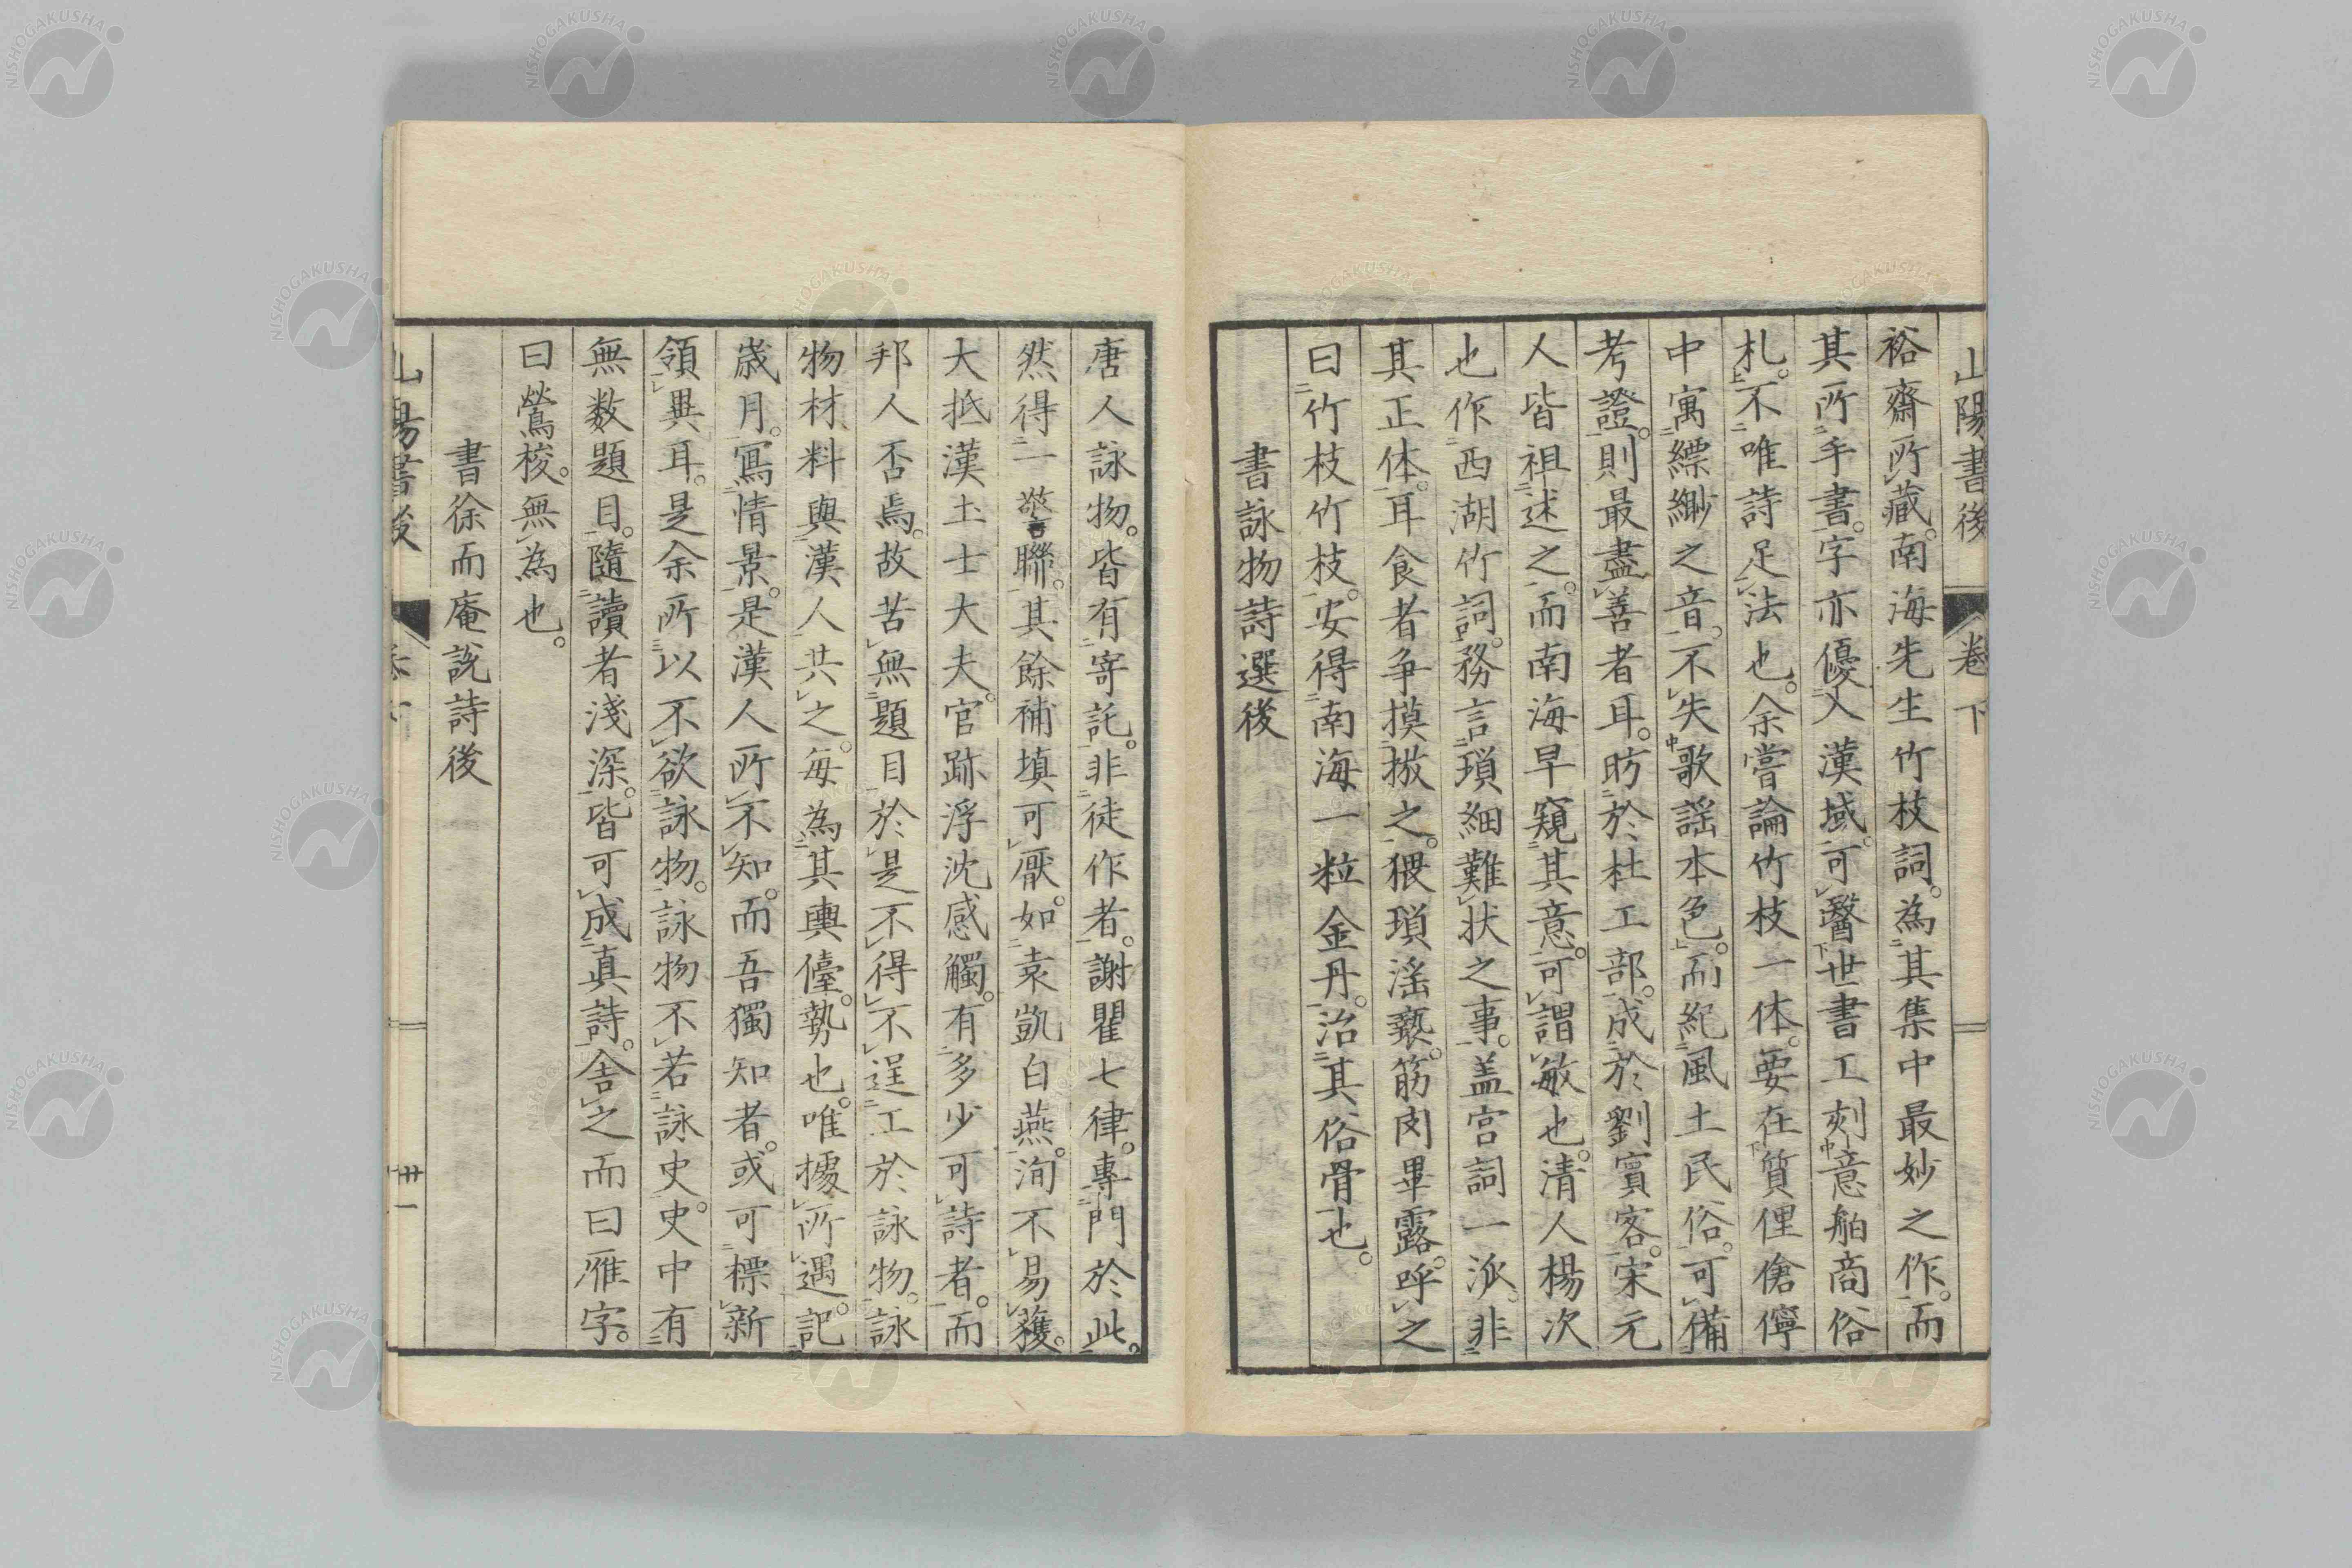 山陽書後 卷下
裕齋所藏。南海先生竹枝詞。為其集中最妙之作。而
其所手書。字亦優入漢域。可醫世書工刻意舶商俗
札。不唯詩足法也。余嘗論竹枝一体。要在質俚傖儜
中寓縹緲之音。不失歌謡本色。而紀風土民俗。可備
考證。則最盡善者耳。昉於杜工部。成於劉賓客。宋元
人皆祖述之。而南海早窺其意。可謂敏也。清人楊次
也作西湖竹詞。務言瑣細難状之事。盖宮詞一派。非
其正体。耳食者争摸擬之。猥瑣滛褻。筋肉畢露。呼之
曰竹枝竹枝。安得南海一粒金丹。治其俗骨也。
書詠物詩選後
唐人詠物。皆有寄託。非徒作者。謝瞿七律。專門於此。
然得一警聯。其餘補填可厭。如袁凱白燕。洵不易獲。
大抵漢土士大夫。官跡浮沈感觸。有多少可詩者。而
邦人否焉。故苦無題目於是不得不逞工於詠物。詠
物材料與漢人共之。毎為其輿儓。勢也。唯據所遇。記
歳月。寫情景。是漢人所不知。而吾獨知者。或可標新
領異耳。是余所以不欲詠物。詠物不若詠史。史中有
無数題目。隨讀者淺深。皆可成真詩。舍之而曰雁字。
曰鶯梭。無為也。
書徐而庵說詩後
山陽書後 廿一
NISHOGAKUSHA